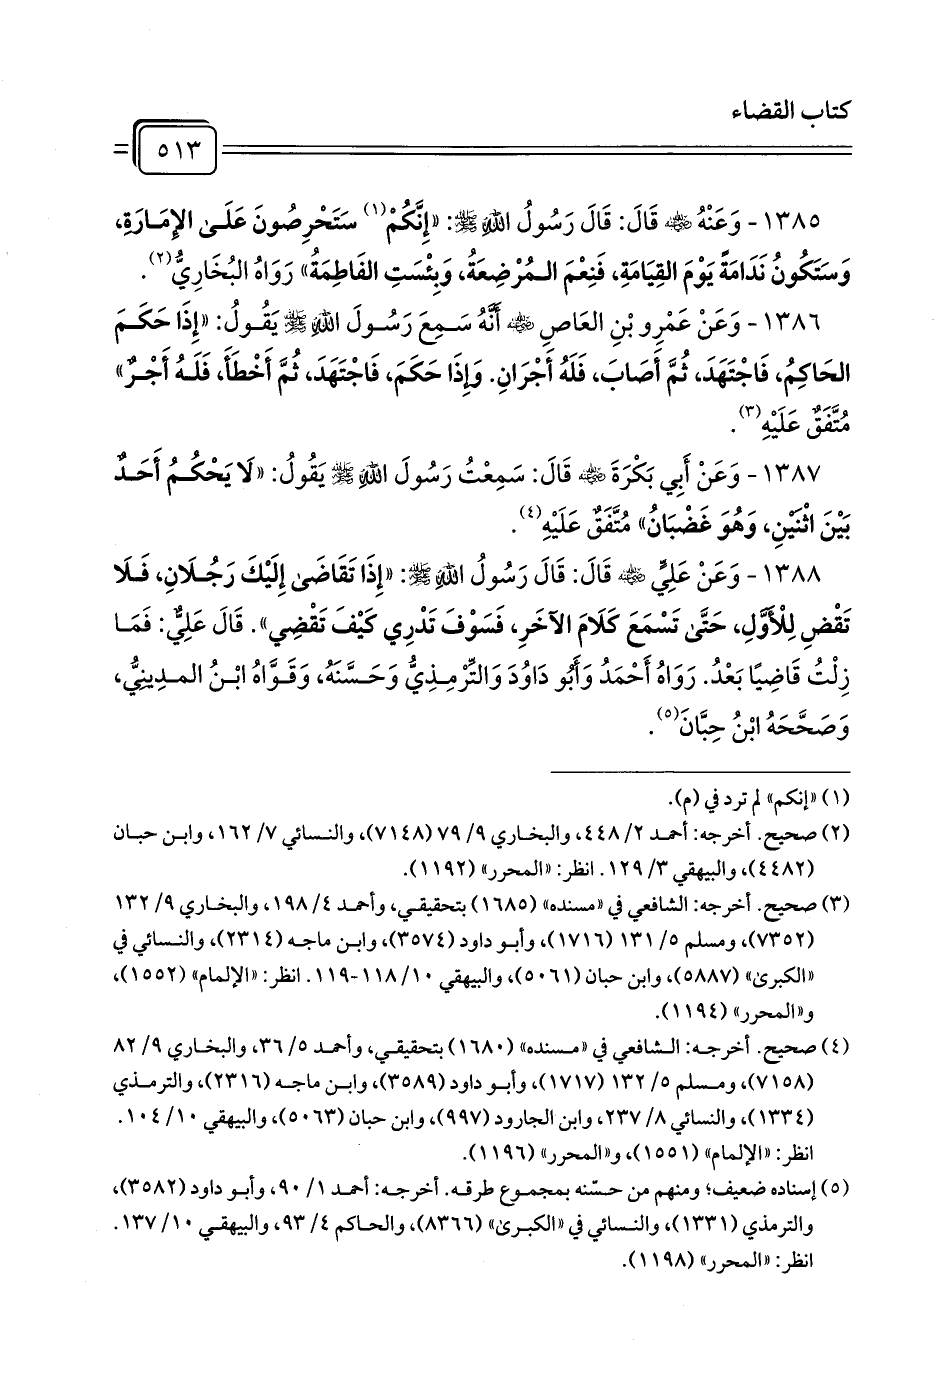 كتاب القضاء
٥١٣
١٣٨٥ - وَعَنْهُ ﷺ قَالَ: قَالَ رَسُولُ اللهِ ﷺ: «إِنَّكُمْ(١) سَتَحْرِصُونَ عَلَى الإِمَارَةِ،
وَسَتَكُونُ نَدَامَةً يَوْمَ القِيَامَةِ، فَنِعْمَ الـمُرْضِعَةُ، وَبِئْسَتِ الفَاطِمَةُ» رَوَاهُ البُخَارِيُّ(٢).
١٣٨٦ - وَعَنْ عَمْرِو بْنِ العَاصِ ﷺ أَنَّهُ سَمِعَ رَسُولَ اللهِ ﷺ يَقُولُ: «إِذَا حَكَمَ
الحَاكِمُ، فَاجْتَهَدَ، ثُمَّ أَصَابَ، فَلَهُ أَجْرَانِ. وَإِذَا حَكَمَ، فَاجْتَهَدَ، ثُمَّ أَخْطَأَ، فَلَهُ أَجْرٌ»
مُتَّفَقٌ عَلَيْهِ(٣).
١٣٨٧ - وَعَنْ أَبِي بَكْرَةَ ﷺ قَالَ: سَمِعْتُ رَسُولَ اللهِ ﷺ يَقُولُ: «لَا يَحْكُمُ أَحَدٌ
بَيْنَ اثْنَيْنِ، وَهُوَ غَضْبَانُ» مُتَّفَقٌ عَلَيْهِ(٤).
١٣٨٨ - وَعَنْ عَلِيٍّ ﷺ قَالَ: قَالَ رَسُولُ اللهِ ﷺ: «إِذَا تَقَاضَى إِلَيْكَ رَجُلَانِ، فَلَا
تَقْضِ لِلْأَوَّلِ، حَتَّى تَسْمَعَ كَلَامَ الآخَرِ، فَسَوْفَ تَدْرِي كَيْفَ تَقْضِي». قَالَ عَلِيٌّ: فَمَا
زِلْتُ قَاضِيًا بَعْدُ. رَوَاهُ أَحْمَدُ وَأَبُو دَاوُدَ وَالتِّرْمِذِيُّ وَحَسَّنَهُ، وَقَوَّاهُ ابْنُ الـمَدِينِيُّ،
وَصَحَّحَهُ ابْنُ حِبَّانَ(٥).
(١) «إنكم» لم ترد في (م).
(٢) صحيح. أخرجه: أحمد ٢/ ٤٤٨، والبخاري ٩/ ٧٩ (٧١٤٨)، والنسائي ٧/ ١٦٢، وابن حبان
(٤٤٨٢)، والبيهقي ٣/ ١٢٩. انظر: «المحرر» (١١٩٢).
(٣) صحيح. أخرجه: الشافعي في «مسنده» (١٦٨٥) بتحقيقي، وأحمد ٤/ ١٩٨، والبخاري ٩/ ١٣٢
(٧٣٥٢)، ومسلم ٥/ ١٣١ (١٧١٦)، وأبو داود (٣٥٧٤)، وابن ماجه (٢٣١٤)، والنسائي في
«الكبرى» (٥٨٨٧)، وابن حبان (٥٠٦١)، والبيهقي ١٠/ ١١٨-١١٩. انظر: «الإلمام» (١٥٥٢)،
و«المحرر» (١١٩٤).
(٤) صحيح. أخرجه: الشافعي في «مسنده» (١٦٨٠) بتحقيقي، وأحمد ٥/ ٣٦، والبخاري ٩/ ٨٢
(٧١٥٨)، ومسلم ٥/ ١٣٢ (١٧١٧)، وأبو داود (٣٥٨٩)، وابن ماجه (٢٣١٦)، والترمذي
(١٣٣٤)، والنسائي ٨/ ٢٣٧، وابن الجارود (٩٩٧)، وابن حبان (٥٠٦٣)، والبيهقي ١٠/ ١٠٤.
انظر: «الإلمام» (١٥٥١)، و«المحرر» (١١٩٦).
(٥) إسناده ضعيف؛ ومنهم من حسّنه بمجموع طرقه. أخرجه: أحمد ١/ ٩٠، وأبو داود (٣٥٨٢)،
والترمذي (١٣٣١)، والنسائي في «الكبرى» (٨٣٦٦)، والحاكم ٤/ ٩٣، والبيهقي ١٠/ ١٣٧.
انظر: «المحرر» (١١٩٨).